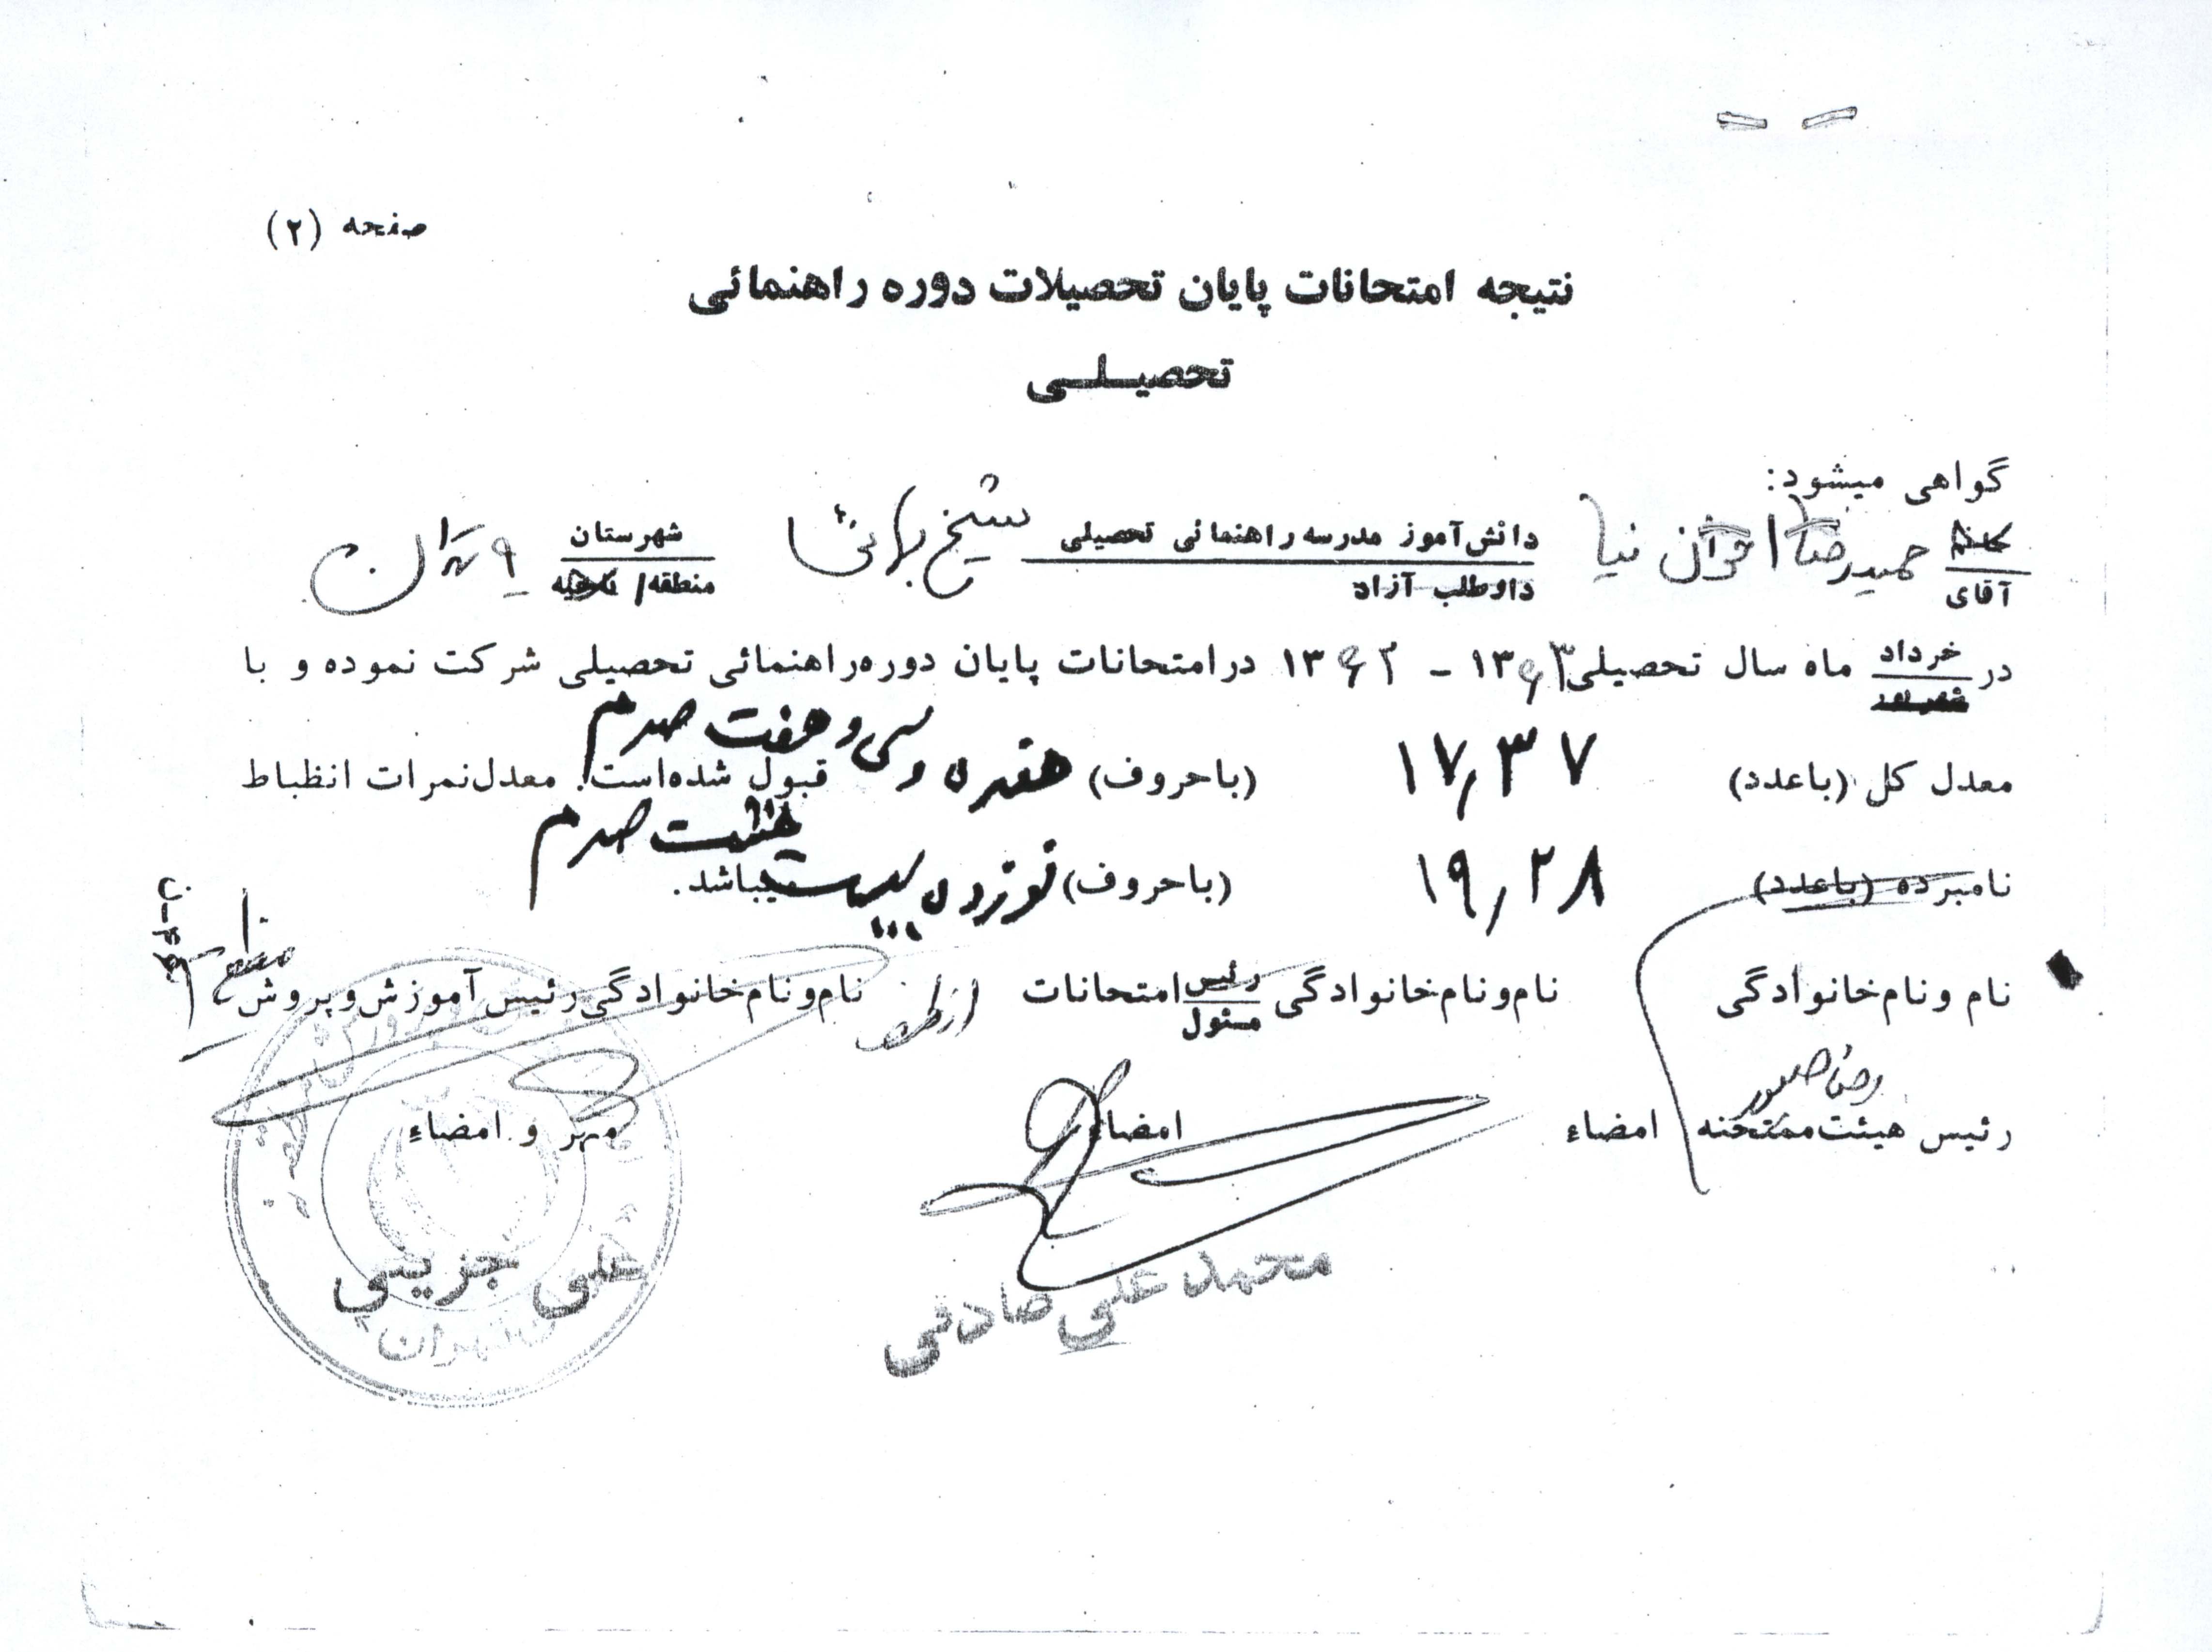 صفحه (۲)
نتیجه امتحانات پایان تحصیلات دوره راهنمائی
تحصیلـی
گواهی میشود:
آقای حمیدرضا اخوان نیا دانش‌آموز مدرسه راهنمائی تحصیلی شیخ شهرستان ۹ تهران
داوطلب آزاد منطقه/ ناحیه
در خرداد ماه سال تحصیلی ۱۳۶۳ - ۱۳۶۲ در امتحانات پایان دوره راهنمائی تحصیلی شرکت نموده و با
شهریور
معدل کل (باعدد) ۱۷,۳۷ (باحروف) هفده و سی و هفت صدم قبول شده است. معدل نمرات انظباط
نامبرده (باعدد) ۱۹,۲۸ (باحروف) نوزده بیست هشت صدم میباشد.
نام و نام خانوادگی نام و نام خانوادگی رئیس امتحانات نام و نام خانوادگی رئیس آموزش و پروش
مسئول از طرف
رئیس هیئت ممتحنه امضاء امضاء مهر و امضاء
محمد علی صادقی علی جزینی
تهران